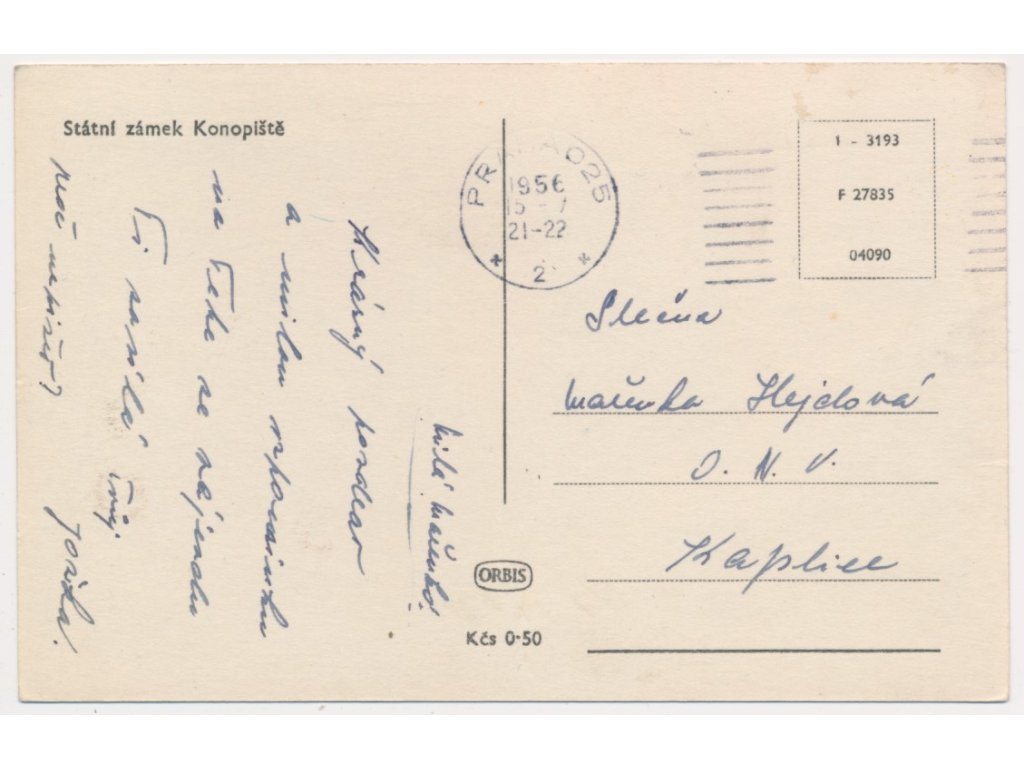 Státní zámek Konopiště
PRAHA 025
1956
15 - 7
21-22
* 2 *
1 - 3193
F 27835
04090
Milá Mařenko!
Krásný pozdrav
a milou vzpomínku
na Tebe ze zájezdu
Ti zasílá Tvůj
Jožka.
Proč nepíšeš?
Slečna
Mařenka Hejdová
O. N. V.
Kaplice
ORBIS
Kčs 0·50